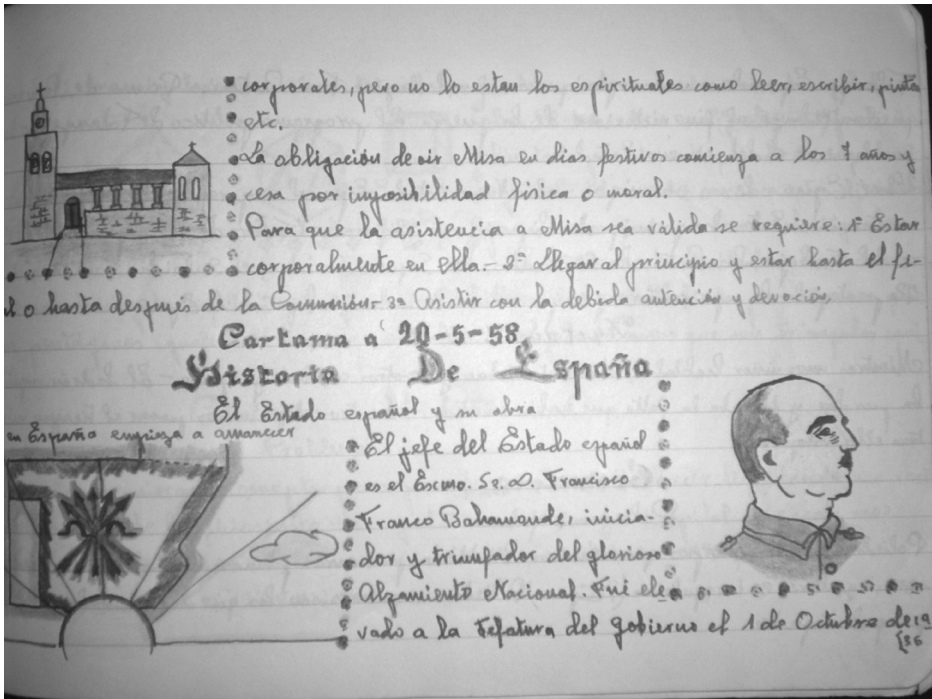 corporales, pero no lo estan los espirituales como leer, escribir, pintar
etc.
La obligación de oir Misa en dias festivos comienza a los 7 años y
cesa por imposibilidad física o moral.
Para que la asistencia a Misa sea válida se requiere: 1º Estar
corporalmente en ella.- 2º Llegar al principio y estar hasta el fi-
al o hasta después de la Comunión.- 3º Asistir con la debida autención y devoción,
Cartama a 20-5-58,
Historia De España
El Estado español y su obra
en España empieza a amanecer
El jefe del Estado español
es el Excmo. Sr. D. Francisco
Franco Bahamonde, inicia-
dor y triunfador del glorioso
Alzamiento Nacional. Fué ele
vado a la Jefatura del gobierno el 1 de Octubre de 19
36